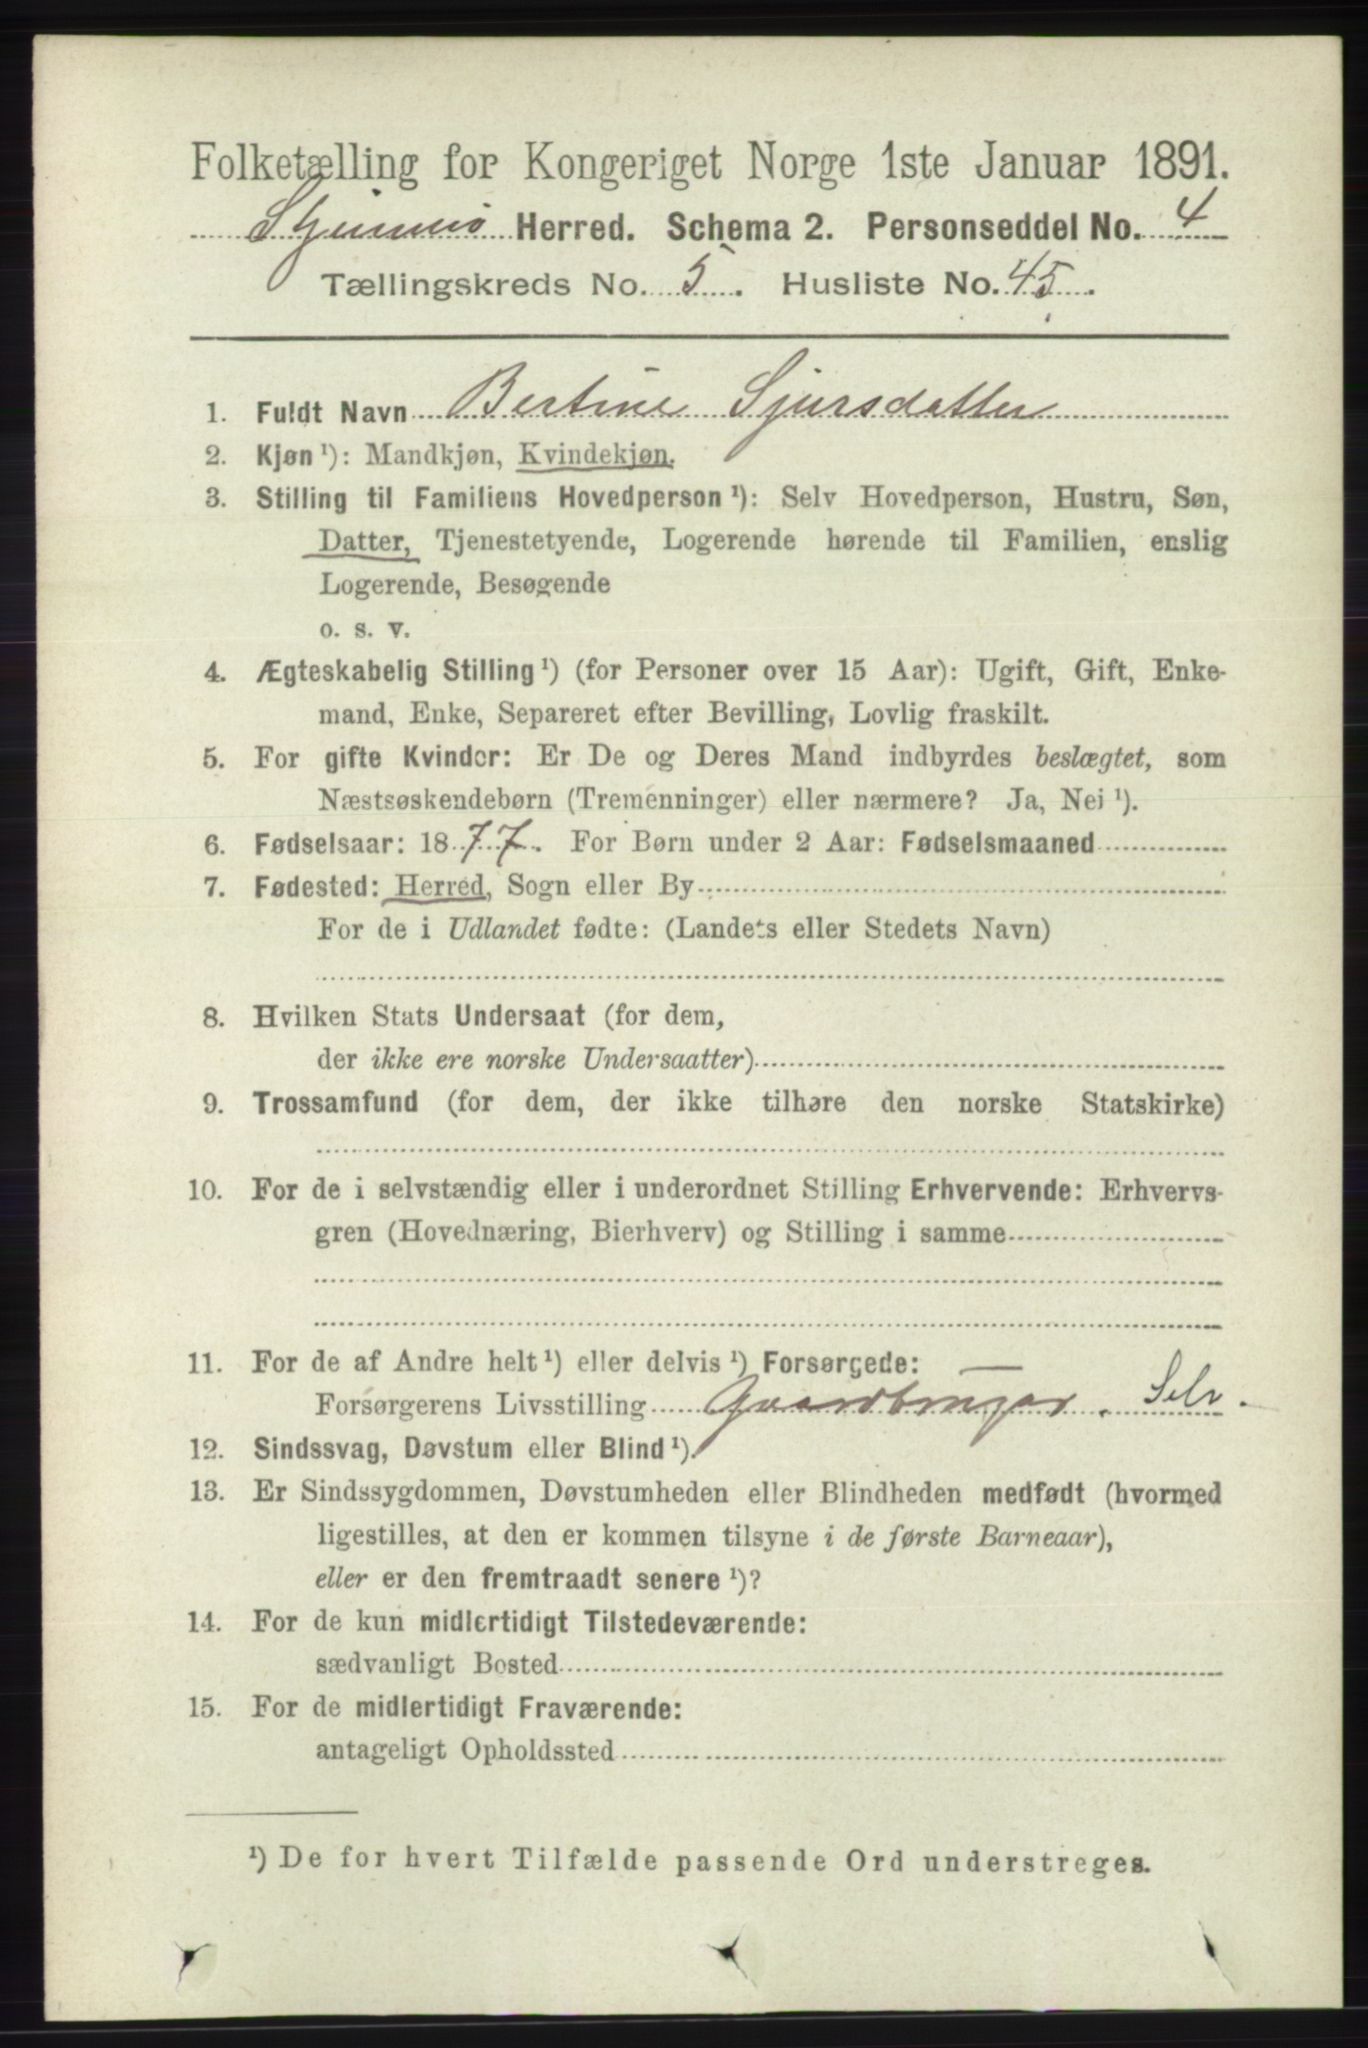 Folketælling for Kongeriget Norge 1ste Januar 1891.
Herred. Schema 2. Personseddel No. 4
Tællingskreds No. 5. Husliste No. 45.
1. Fuldt Navn Bertine Sjursdatter
2. Kjøn ¹): Mandkjøn, Kvindekjøn.
3. Stilling til Familiens Hovedperson ¹): Selv Hovedperson, Hustru, Søn,
Datter, Tjenestetyende, Logerende hørende til Familien, enslig
Logerende, Besøgende
o. s. v.
4. Ægteskabelig Stilling ¹) (for Personer over 15 Aar): Ugift, Gift, Enke-
mand, Enke, Separeret efter Bevilling, Lovlig fraskilt.
5. For gifte Kvinder: Er De og Deres Mand indbyrdes beslægtet, som
Næstsøskendebørn (Tremenninger) eller nærmere? Ja, Nei ¹).
6. Fødselsaar: 1877. For Børn under 2 Aar: Fødselsmaaned
7. Fødested: Herred, Sogn eller By
For de i Udlandet fødte: (Landets eller Stedets Navn)
8. Hvilken Stats Undersaat (for dem,
der ikke ere norske Undersaatter)
9. Trossamfund (for dem, der ikke tilhøre den norske Statskirke)
10. For de i selvstændig eller i underordnet Stilling Erhvervende: Erhvervs-
gren (Hovednæring, Bierhverv) og Stilling i samme
11. For de af Andre helt ¹) eller delvis ¹) Forsørgede:
Forsørgerens Livsstilling Gaardbruger. Selv.
12. Sindssvag, Døvstum eller Blind ¹).
13. Er Sindssygdommen, Døvstumheden eller Blindheden medfødt (hvormed
ligestilles, at den er kommen tilsyne i de første Barneaar),
eller er den fremtraadt senere ¹)?
14. For de kun midlertidigt Tilstedeværende:
sædvanligt Bosted
15. For de midlertidigt Fraværende:
antageligt Opholdssted
¹) De for hvert Tilfælde passende Ord understreges.